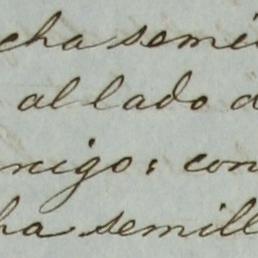 cha semi
al lado d
migo; con
ha semill